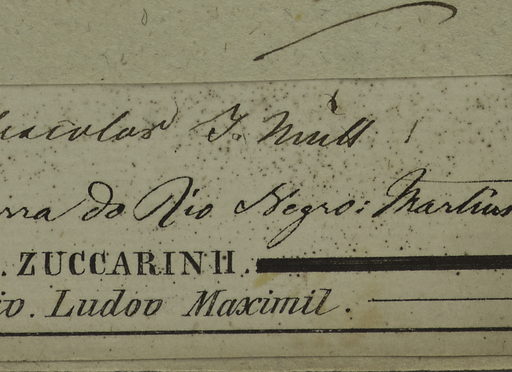 J. Müll
rra do Rio Negro: Martius
. ZUCCARINII.
iv. Ludov Maximil.